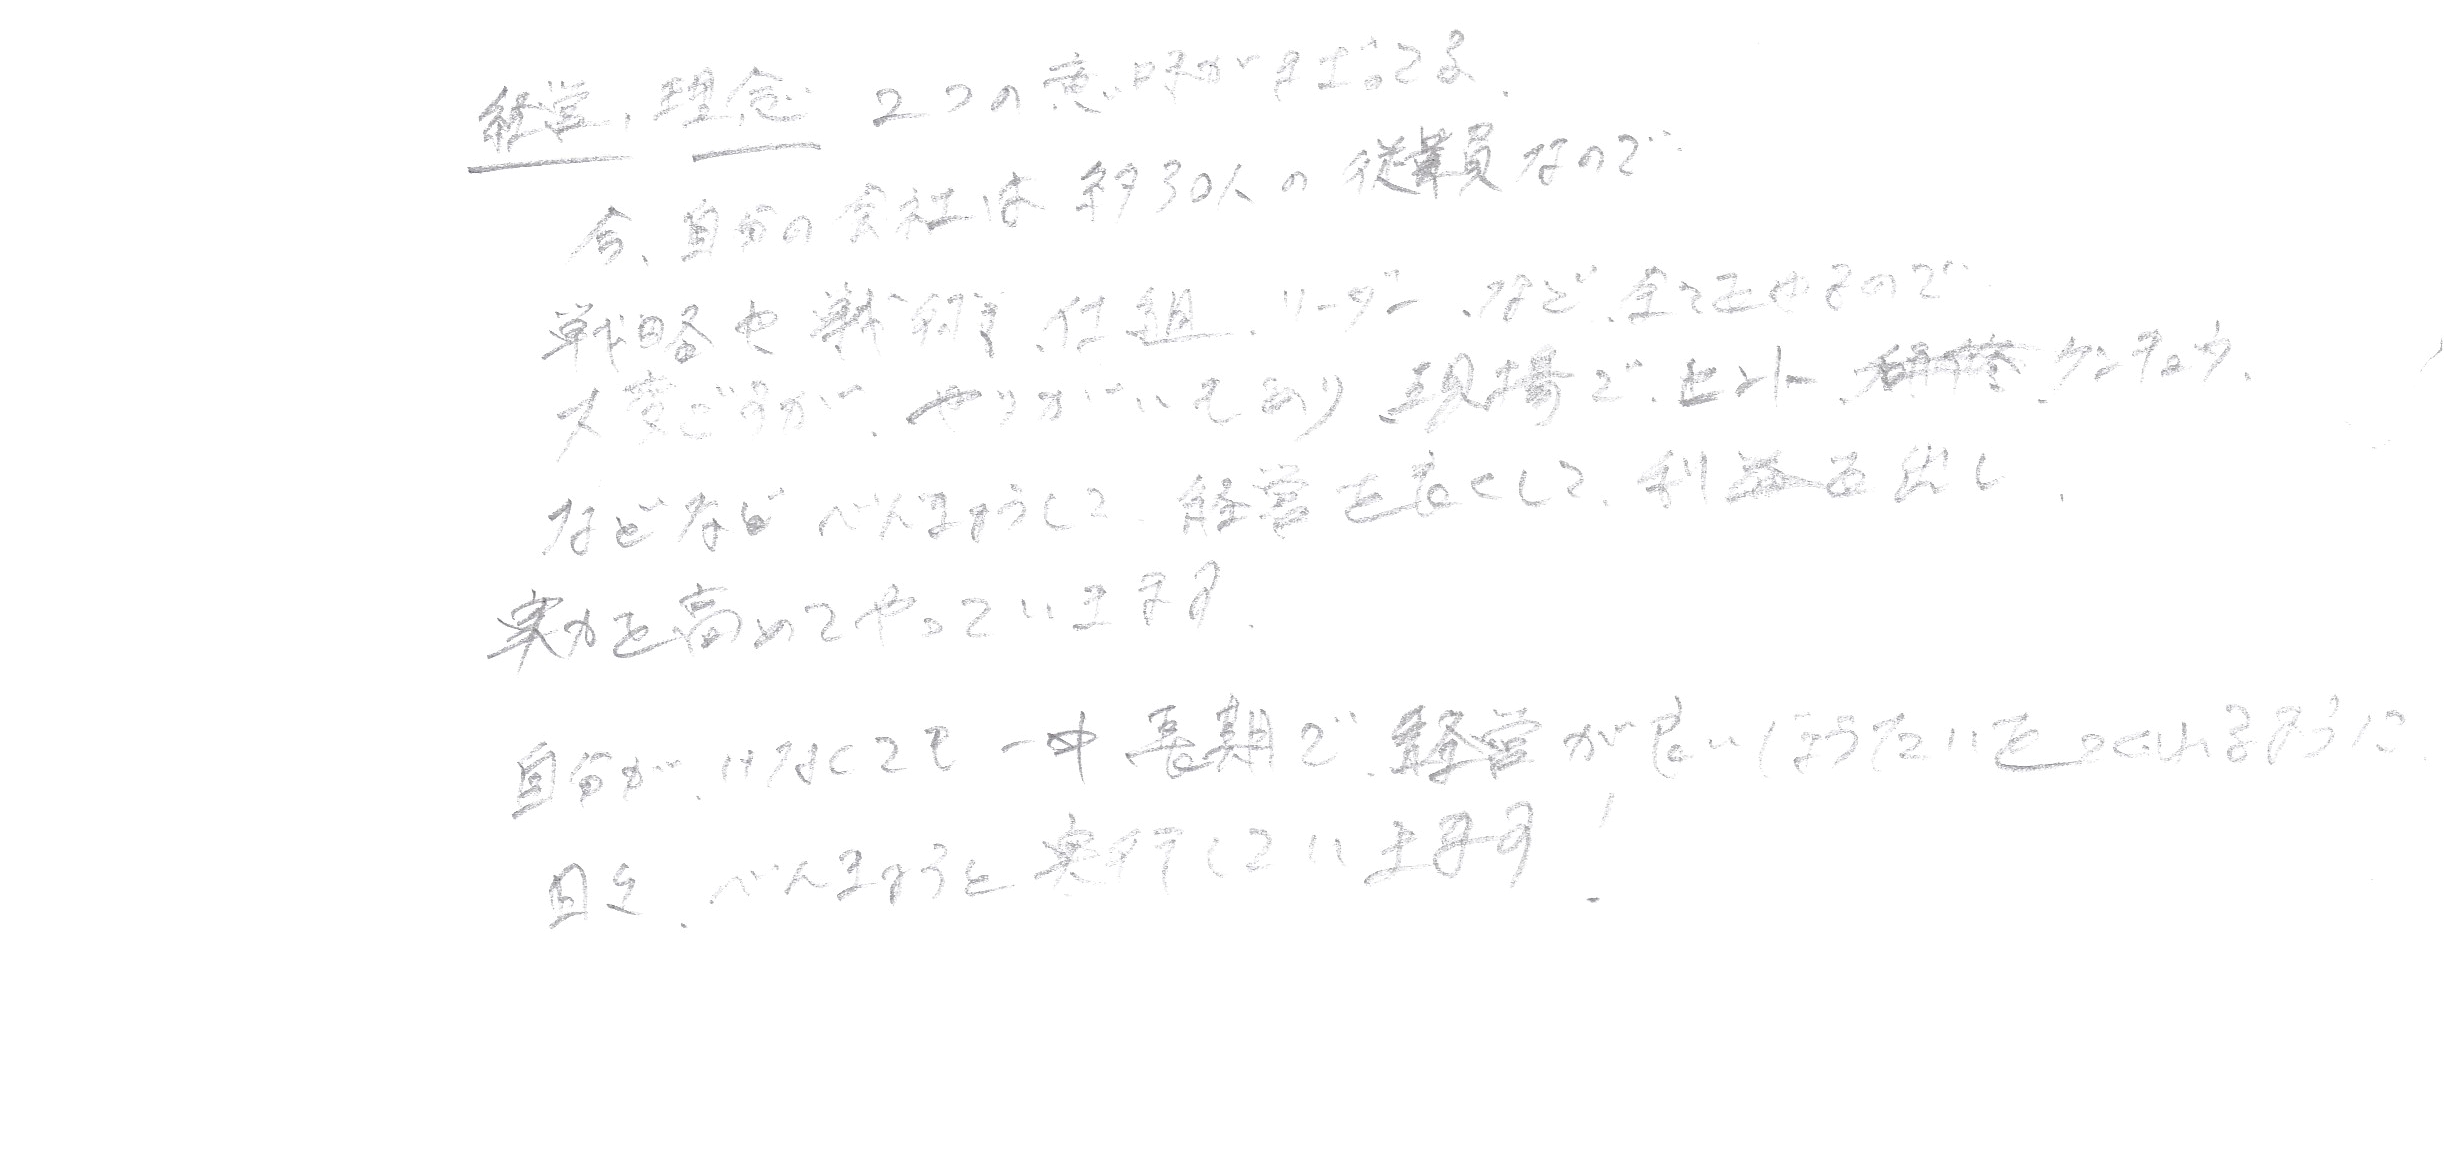 経営、理念 2つの意味がまざってる。
今、自分の会社は約30人の従業員なので
戦略や戦術、仕組、リーダー、など、全てをやるので
大変ですが、やりがいもあり 現場で、ヒント、研修、
などなど べんきょうして、経営を良くして、利益を出し、
実力を高めてやっています。
自分が、いなくても 中長期で、経営が良いじょうたいをつくれるように、
日々、べんきょうと実行しています!